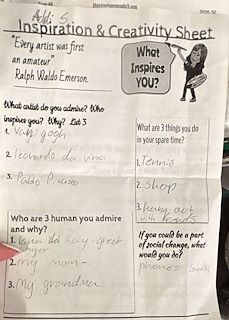 Add 5.
Inspiration & Creativity Sheet
"Every artist was first
an amateur"
Ralph Waldo Emerson.
What
Inspires
YOU?
What artist do you admire? Who
inspires you? Why? List 3
1. Van gogh
2. leonardo da vinci
3. Pablo Picasso
What are 3 things you do
in your spare time?
1. Tennis
2. shop
3. hang out
with friends
Who are 3 human you admire
and why?
1. lana del Rey - great
singer
2. my mom -
3. My grandma
If you could be a part
of social change, what
would you do?
phones